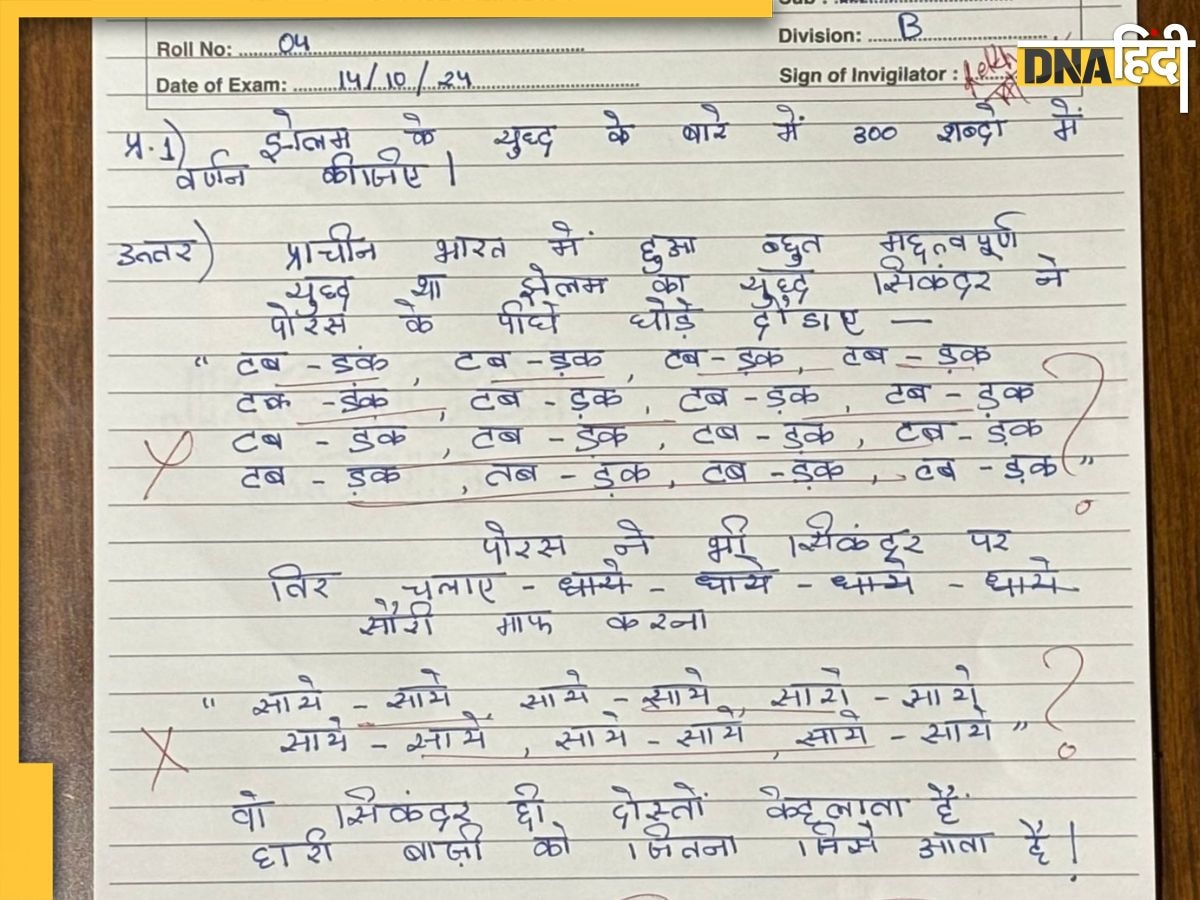 Roll No: 04
Division: B
DNA हिंदी
Date of Exam: 14/10/24
Sign of Invigilator :
प्र.1) झेलम के युध्द के बारे में 300 शब्दो में
वर्णन कीजिए।
उत्तर) प्राचीन भारत में हुआ बहुत महत्वपूर्ण
युध्द था झेलम का युध्द सिकंदर ने
पोरस के पीछे घोड़े दौडाए —
" टब - डंक , टब - ड़क , टब - ड़क , टब - ड़क
टक - डंक , टब - ड़क , टब - ड़क , टब - ड़क
टब - ड़क , टब - ड़क , टब - ड़क , टब - ड़क
टब - ड़क , तब - ड़क , टब - ड़क , टब - ड़क "
?
पोरस ने भी सिकंदर पर
तिर चलाए - धाये - धाये - धाये - धाये
सौरी माफ करना
" साये - साये साये - साये, साये - साये,
साये - साये , साये - साये , साये - साये "
?
वो सिकंदर ही दोस्तों केहलाता है
हारी बाज़ी को जितना जिसे आता है।